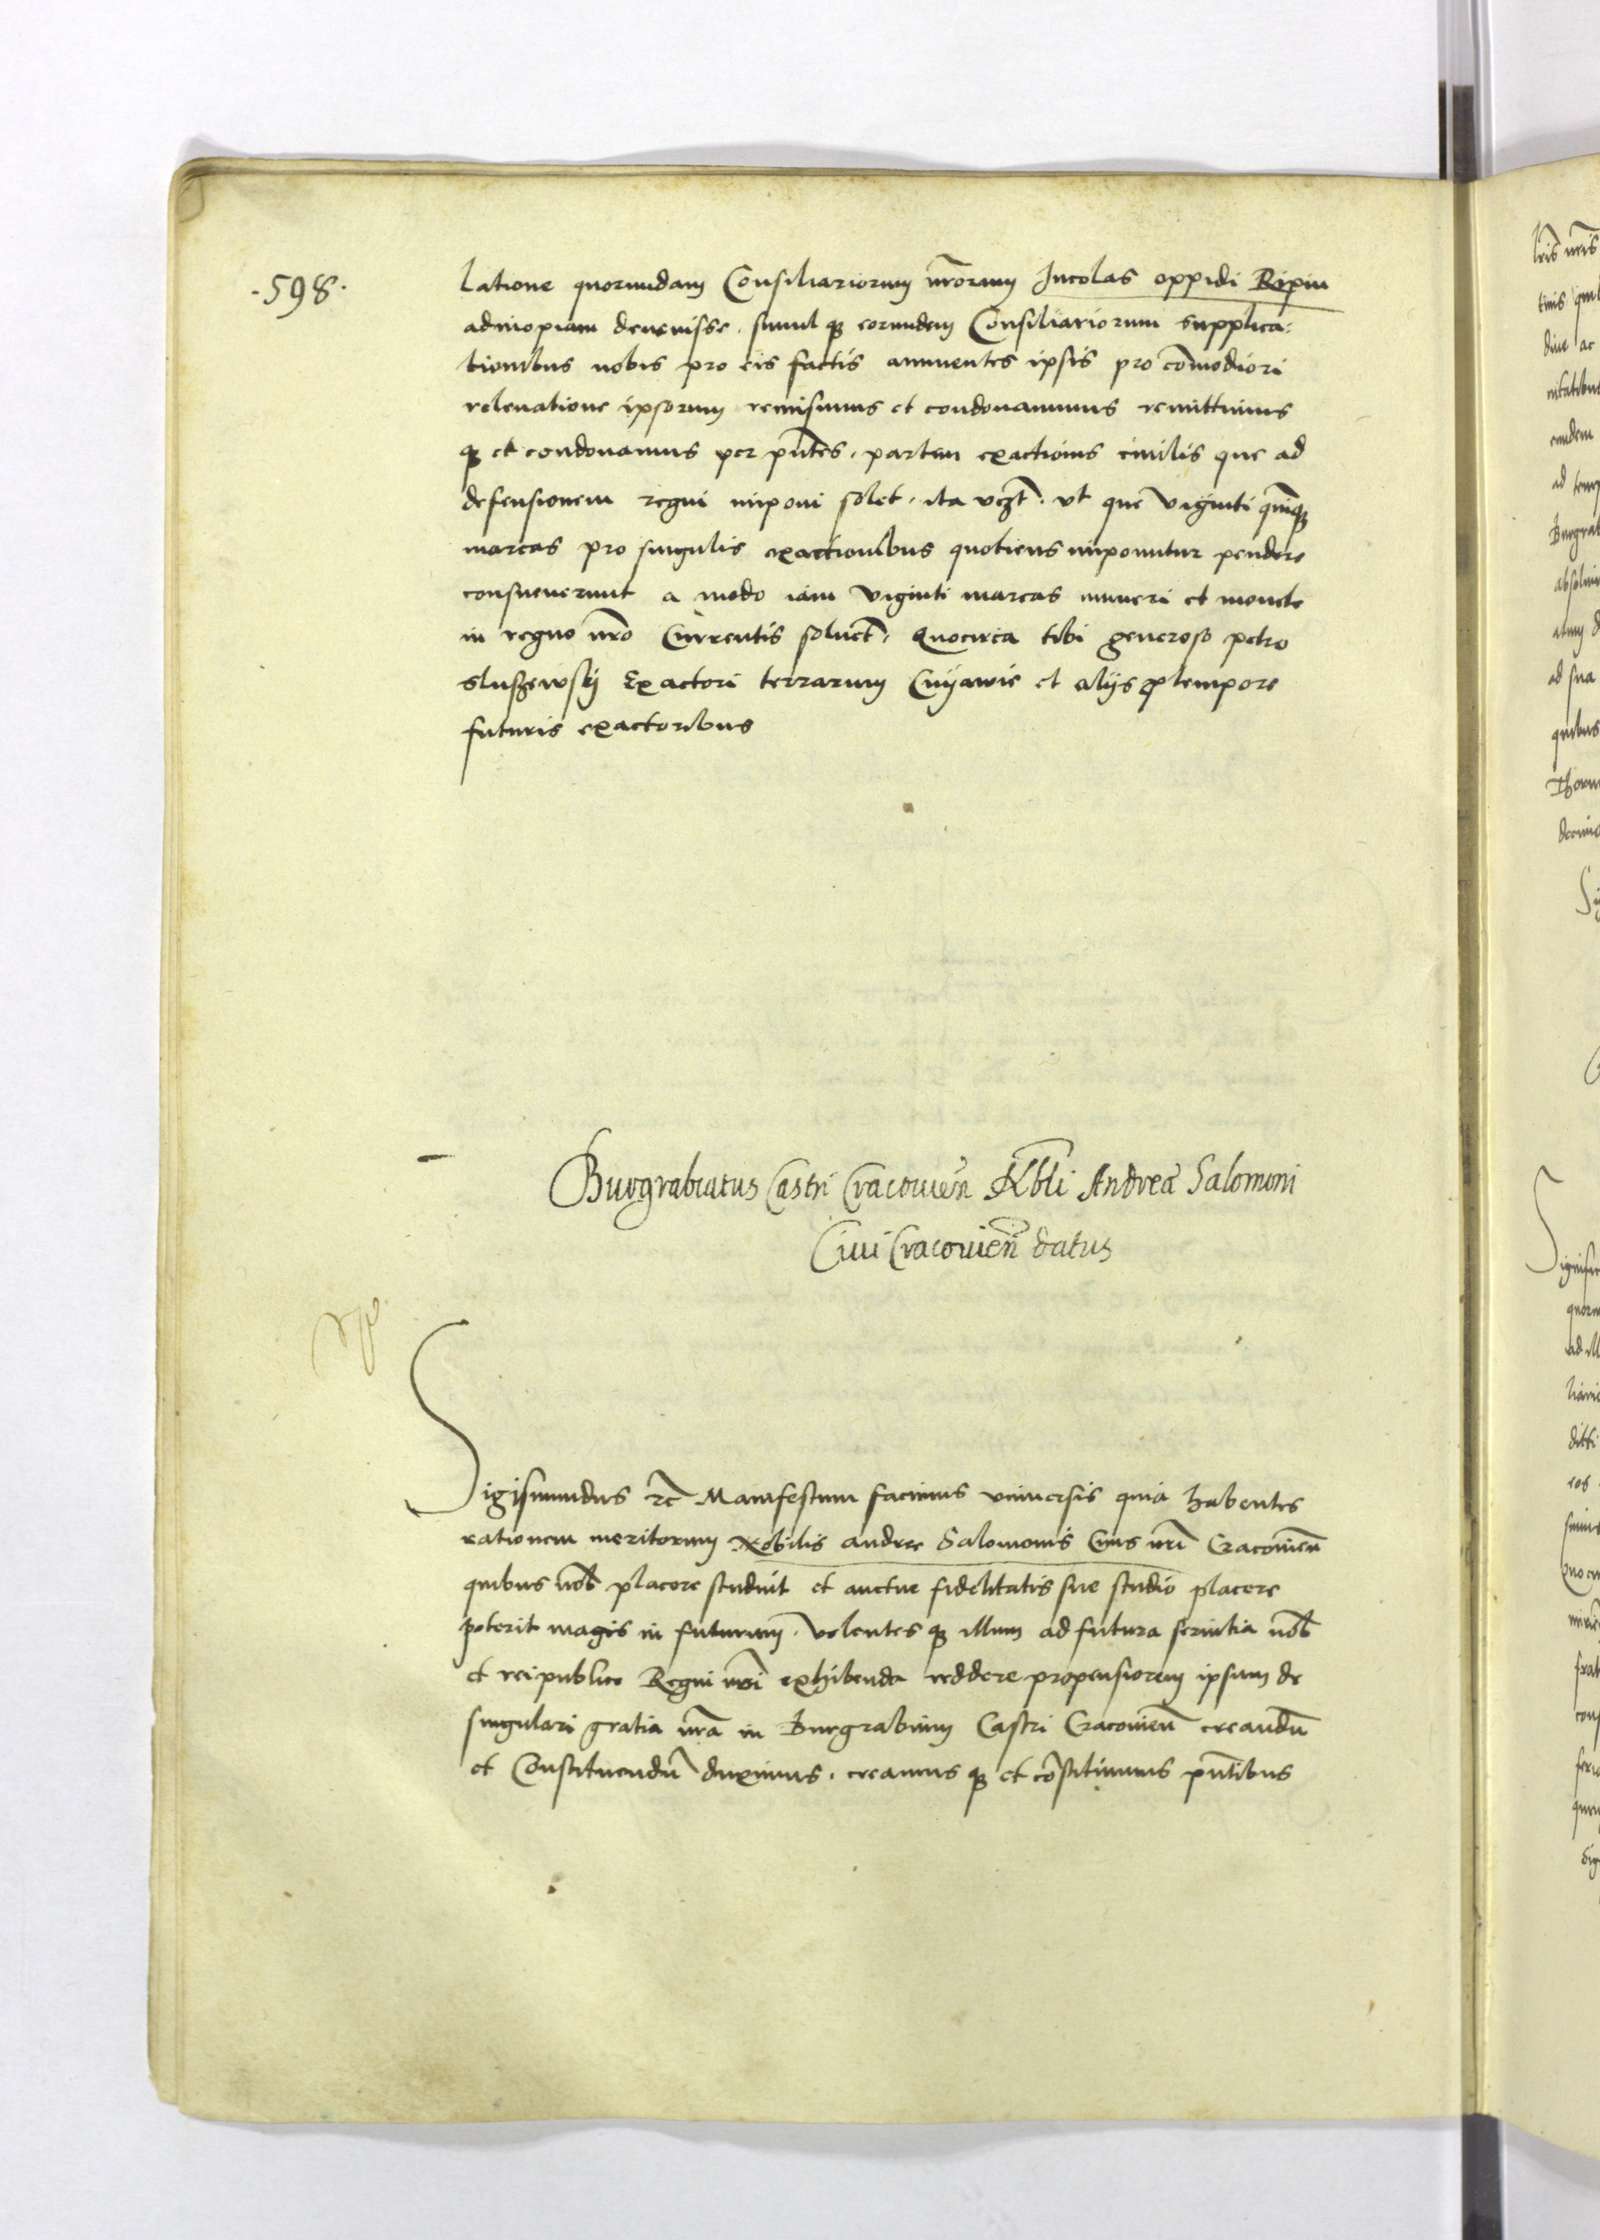 ·598·
latione quorundam Consiliariorum nr̃orum Incolas oppidi Ripin
ad inopiam devenisse, simul qȝ eorundem Consiliariorum supplica:
tionibus nobis pro eis factis annuentes ipsis pro cõmodiori
relevatione ipsorum remisimus et condonavimus remittimus
qȝ et condonamus per pñtes, partem exactionis civilis que ad
defensionem regni imponi solet, ita vcȝt̃, vt que viginti quinqȝ
marcas pro singulis exactionibus quotiens imponuntur pendere
consueverunt a modo iam viginti marcas numeri et monete
in regno nr̃o Currentis solvẽt, Quocirca tibi generoso petro
Sluszewskÿ Exactori terrarum Cuÿavie et alÿs ꝓ tempore
futuris exactoribus
Burgrabiatus Castri Cracovieñ Nobli Andreæ Salomoni
Civi Cracovieñ datus
Sigismundus ꝛc̃ Manifestum facimus vniversis quia habentes
rationem meritorum Nobilis andree Salomonis Civis nr̃i Cracovieñ
quibus nob̃ placere studuit et auctue fidelitatis sue studio placere
poterit magis in futurum, volentes qȝ illum ad futura servitia nob̃
et reipublice Regni nr̃i exhibenda reddere propensiorem ipsum de
singulari gratia nr̃a in Burgrabium Castri Cracovieñ creandũ
et Constituendũ duximus, creamus qȝ et cõstituimus pñtibus